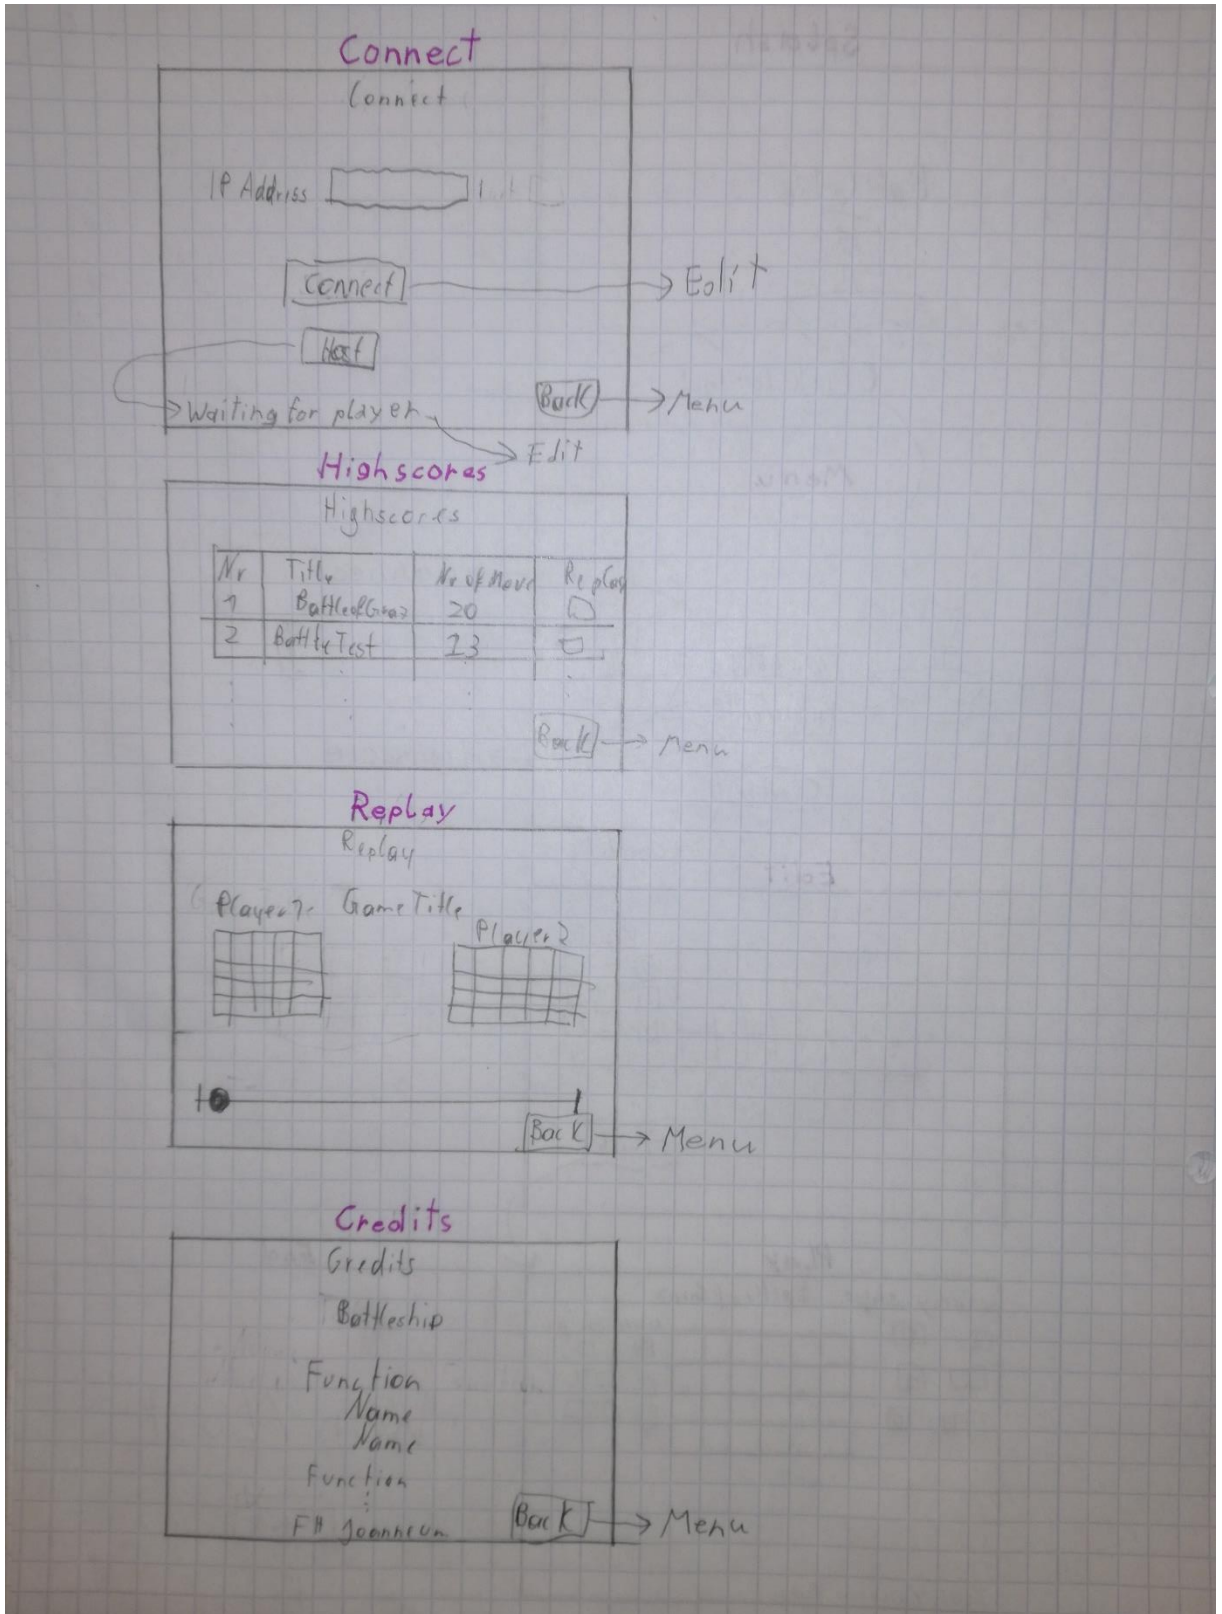 Connect
Connect
IP Address
Connect → Edit
Host
Back → Menu
Waiting for player
Edit
Highscores
Highscores
Nr Title Nr of Move Replay
1 BattleofGraz 20
2 BattleTest 23
Back → Menu
Replay
Replay
Player1 GameTitle
Player2
Back → Menu
Credits
Credits
Battleship
Function
Name
Name
Function
FH Joanneum Back → Menu